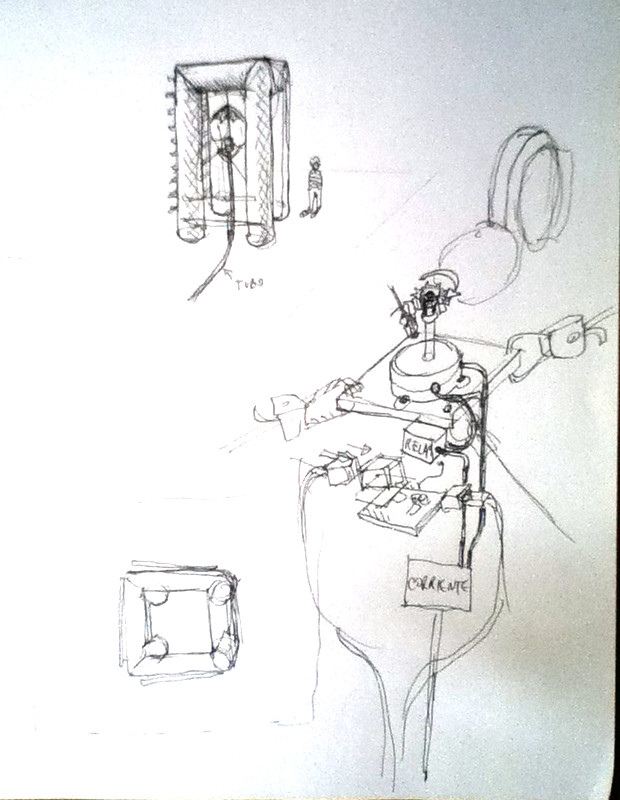 TUBO
RELAY
CORRIENTE